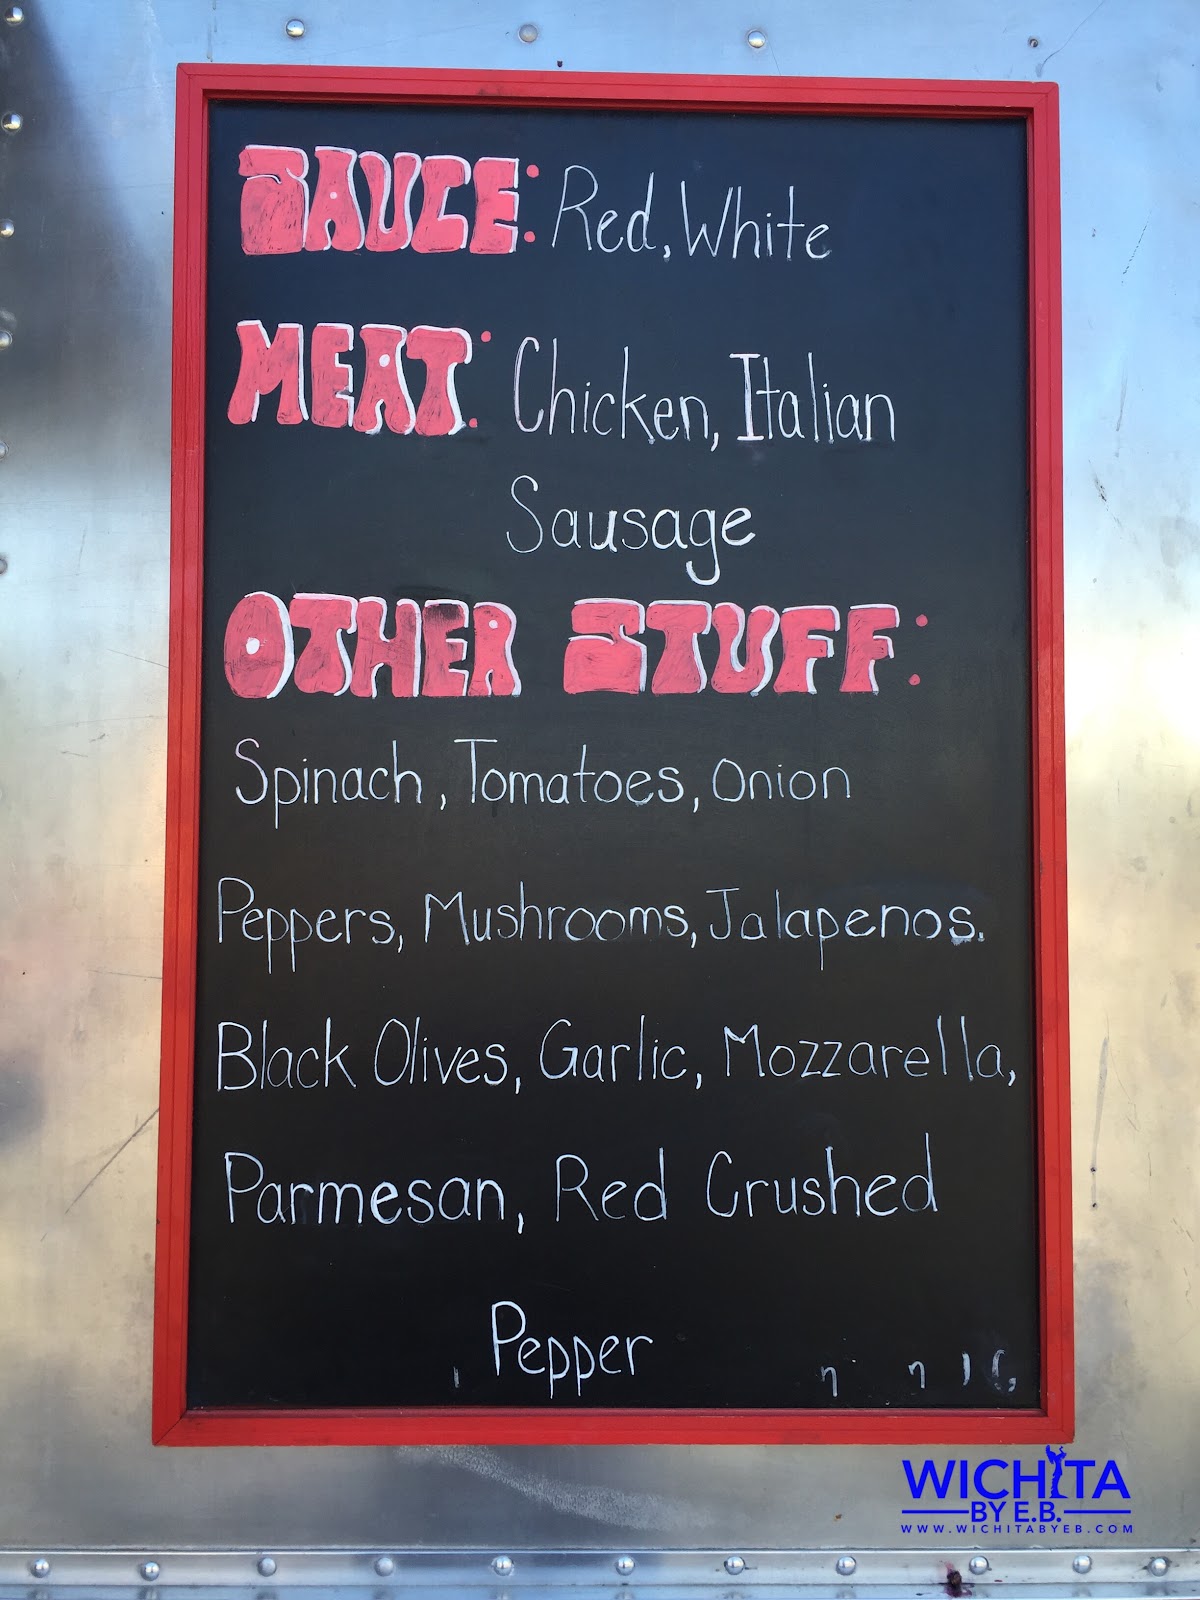 SAUCE: Red, White
MEAT: Chicken, Italian
Sausage
OTHER STUFF:
Spinach, Tomatoes, Onion
Peppers, Mushrooms, Jalapenos.
Black Olives, Garlic, Mozzarella,
Parmesan, Red Crushed
Pepper
WICHITA
BY E.B.
WWW.WICHITABYEB.COM